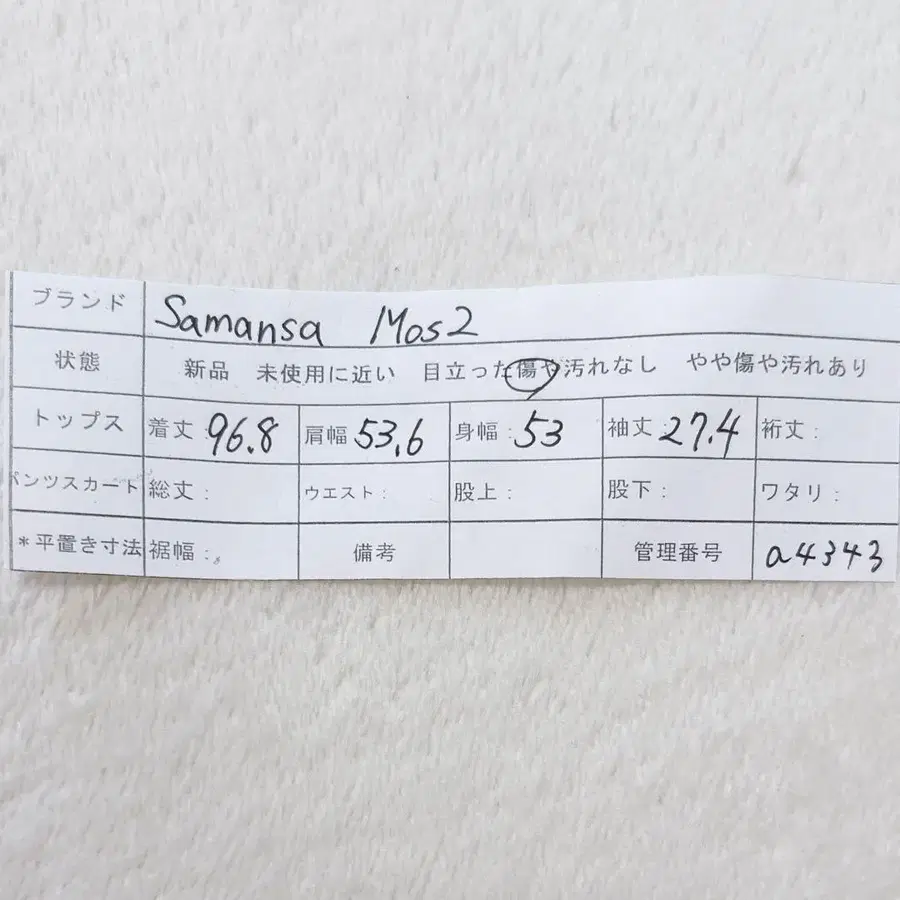 ブランド Samansa Mos2
状態 新品 未使用に近い 目立った傷や汚れなし やや傷や汚れあり
トップス 着丈: 96.8 肩幅: 53.6 身幅: 53 袖丈: 27.4 裄丈:
パンツスカート 総丈: ウエスト: 股上: 股下: ワタリ:
*平置き寸法 裾幅: 備考 管理番号 a4343